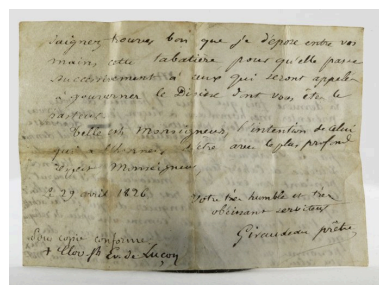 Daignez trouver bon que je dépose entre vos
mains, cette tabatière pour qu'elle passe
successivement à ceux qui seront appelés
à gouverner le Diocèse dont vous êtes le
pasteur.
Telle est, Monseigneur, l'intention de celui
qui a l'honneur d'être avec le plus profond
respect Monseigneur,
29 avril 1826
Votre très humble et très
obéissant serviteur
Giraudeau prêtre,
Pour copie conforme
+ Ev. de Luçon